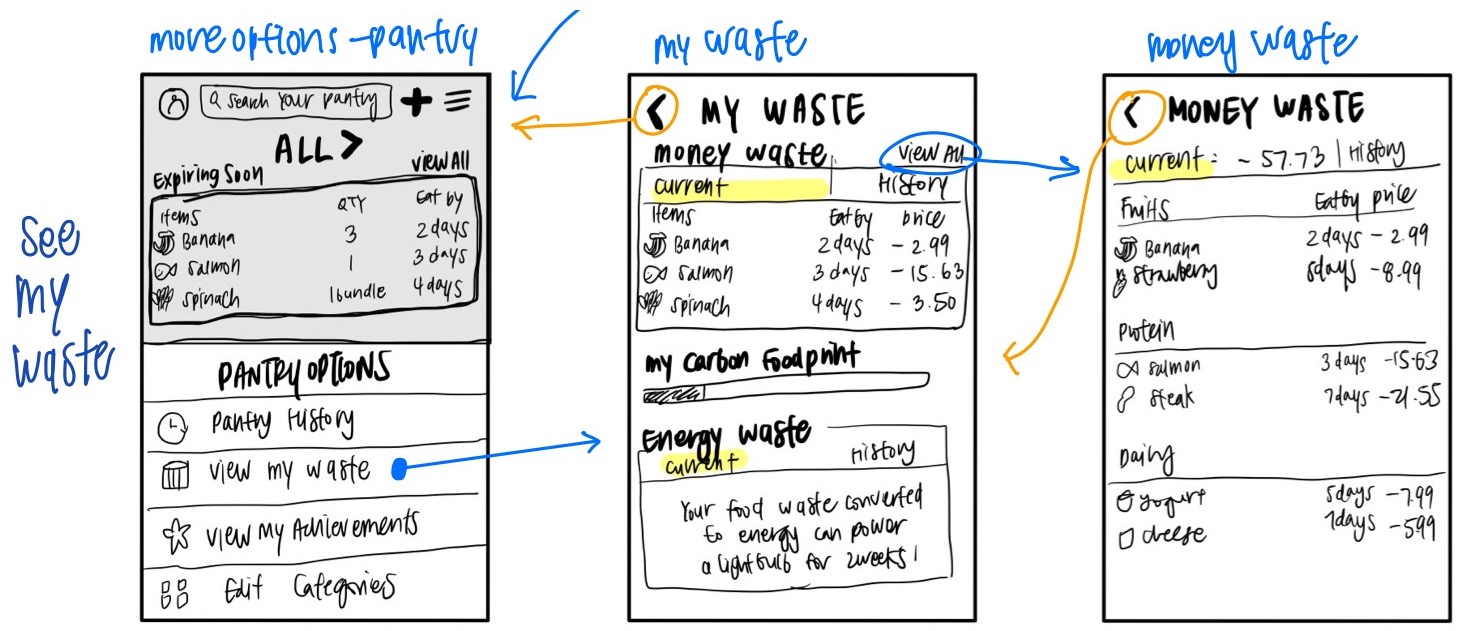 see
my
waste
more options - pantry
Search Your pantry
ALL >
Expiring Soon view All
Items QTY Eat by
Banana 3 2 days
Salmon 1 3 days
Spinach 1 bundle 4 days
PANTRY OPTIONS
Pantry History
View my waste
View My Achievements
Edit Categories
my waste
< MY WASTE
money waste View All
current History
Items Eat by price
Banana 2 days - 2.99
Salmon 3 days - 15.63
Spinach 4 days - 3.50
my Carbon Footprint
Energy waste
current History
Your food waste converted
to energy can power
a lightbulb for 2 weeks!
money waste
< MONEY WASTE
current: ~ 57.73 | History
Fruits Eat by price
Banana 2 days - 2.99
Strawberry 5 days - 8.99
Protein
Salmon 3 days - 15.63
Steak 7 days - 21.55
Dairy
Yogurt 5 days - 7.99
Cheese 7 days - 5.99